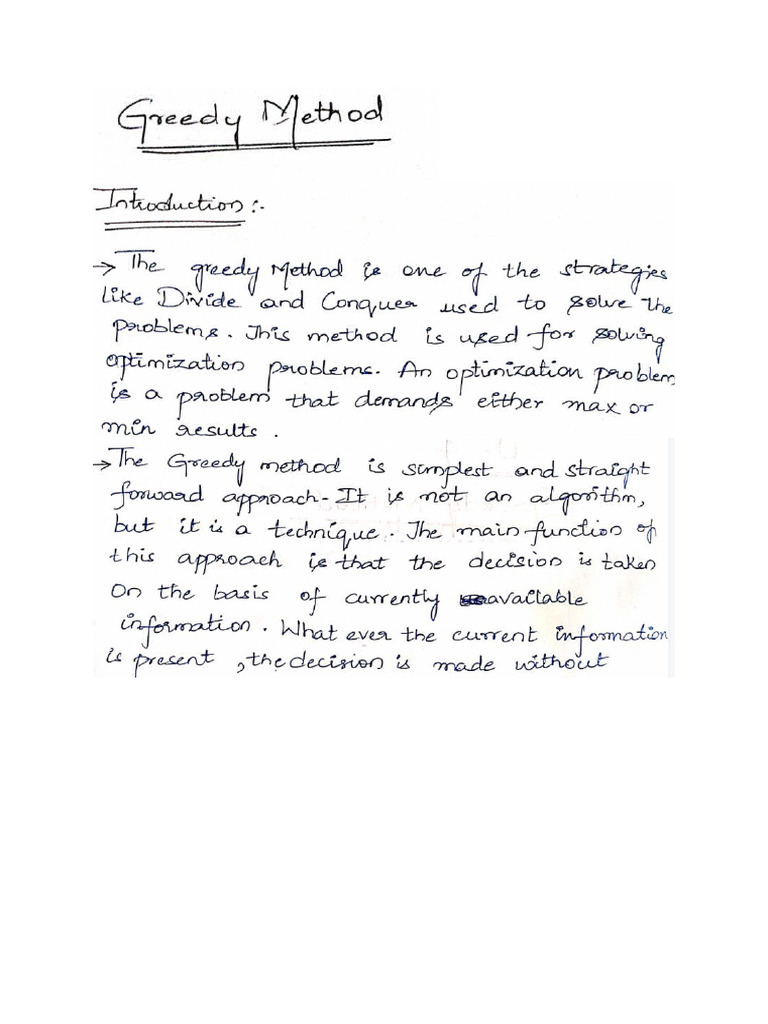 Greedy Method
Introduction:-
→ The greedy Method is one of the strategies
like Divide and Conquer used to solve the
problems. This method is used for solving
optimization problems. An optimization problem
is a problem that demands either max or
min results.
→ The Greedy method is simplest and straight
forward approach- It is not an algorithm,
but it is a technique. The main function of
this approach is that the decision is taken
on the basis of currently available
information. What ever the current information
is present, the decision is made without